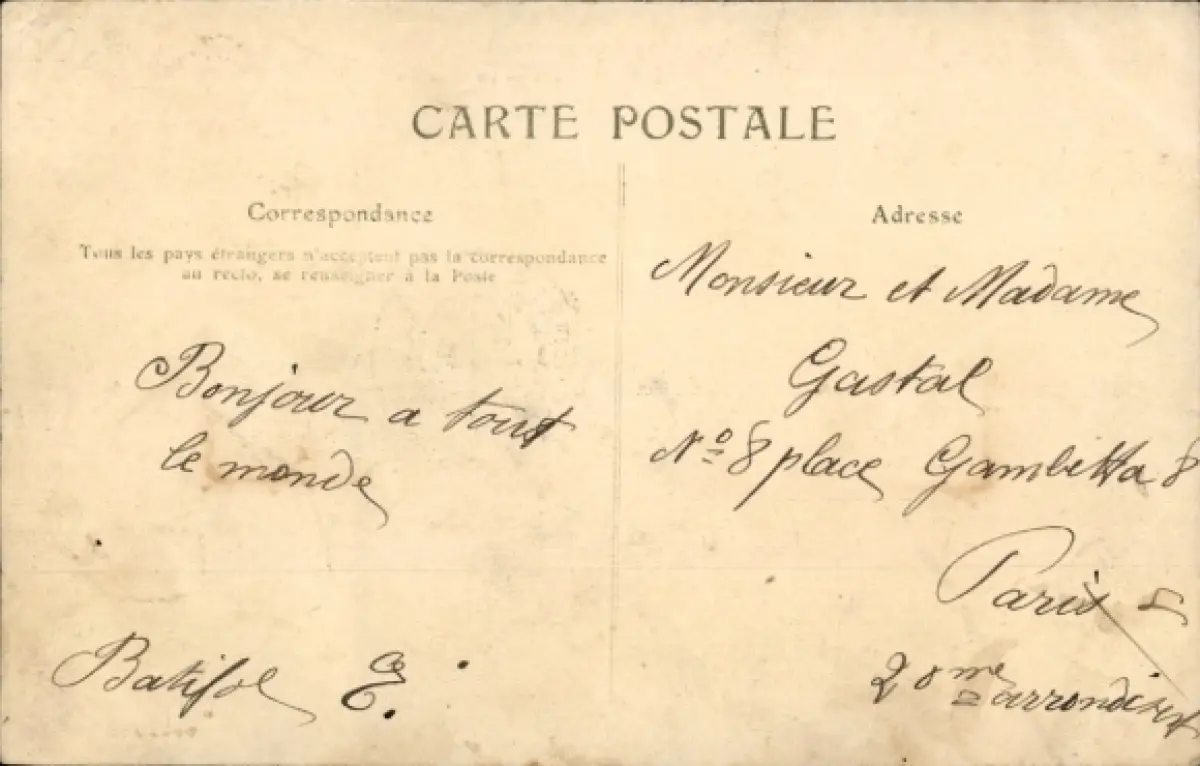 CARTE POSTALE
Correspondance
Tous les pays étrangers n'acceptent pas la correspondance
au recto, se renseigner à la Poste
Bonjour a tout
le monde
Batifol E.
Adresse
Monsieur et Madame
Gastal
No 8 place Gambetta 8
Paris
20me arrondisst